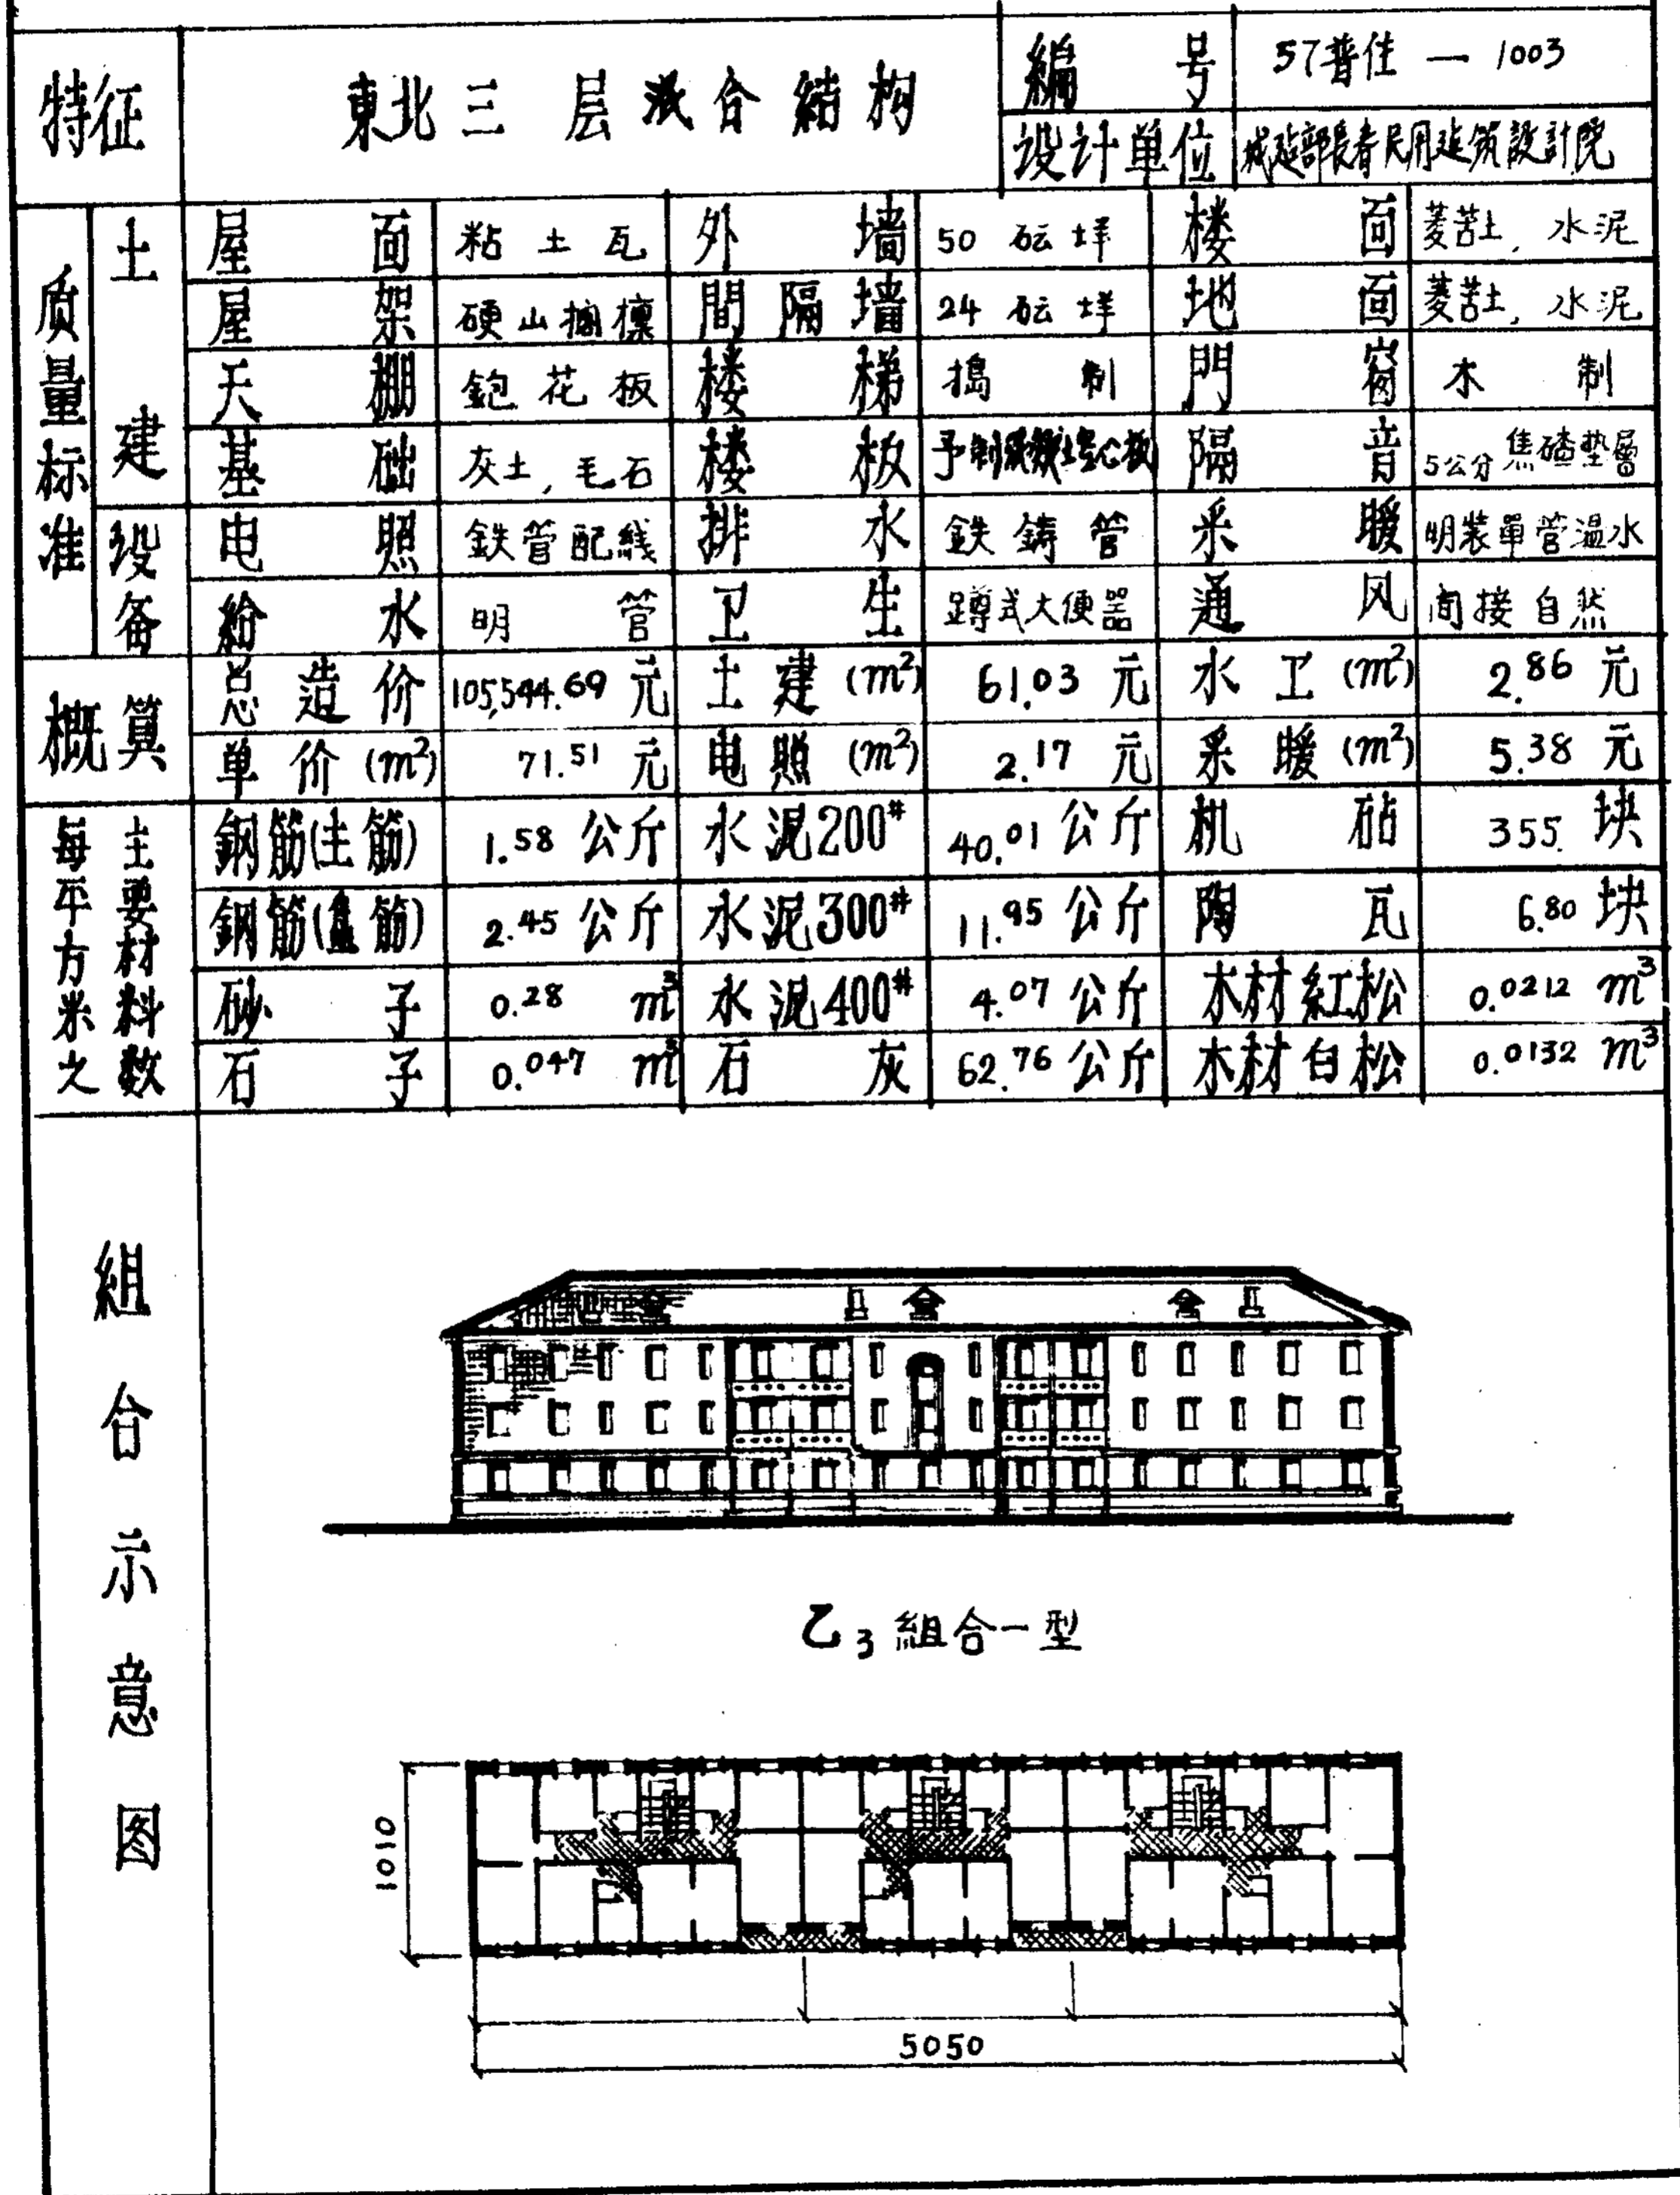 特征 東北三层混合結构 編号 57普住—1003
设计单位 城建部長春民用建筑設計院
质量标准 土建 屋面 粘土瓦 外墙 50 砖墙 楼面 菱苦土, 水泥
屋架 硬山搁檩 間隔墙 24 砖墙 地面 菱苦土, 水泥
天棚 鉋花板 楼梯 搗制 門窗 木制
基础 灰土, 毛石 楼板 予制 空心板 隔音 5公分焦碴垫層
设备 电照 鉄管配綫 排水 鉄鋳管 采暖 明装單管温水
給水 明管 卫生 蹲式大便器 通风 間接自然
概算 总造价 105,544.69 元 土建(m²) 61.03 元 水卫(m²) 2.86 元
单价(m²) 71.51 元 电照(m²) 2.17 元 采暖(m²) 5.38 元
每平方米之主要材料数 鋼筋(主筋) 1.58 公斤 水泥200# 40.01 公斤 机砖 355. 块
鋼筋(盘筋) 2.45 公斤 水泥300# 11.95 公斤 陶瓦 6.80 块
砂子 0.28 m³ 水泥400# 4.07 公斤 木材紅松 0.0212 m³
石子 0.047 m³ 石灰 62.76 公斤 木材白松 0.0132 m³
組合示意图
乙3組合一型
1010
5050